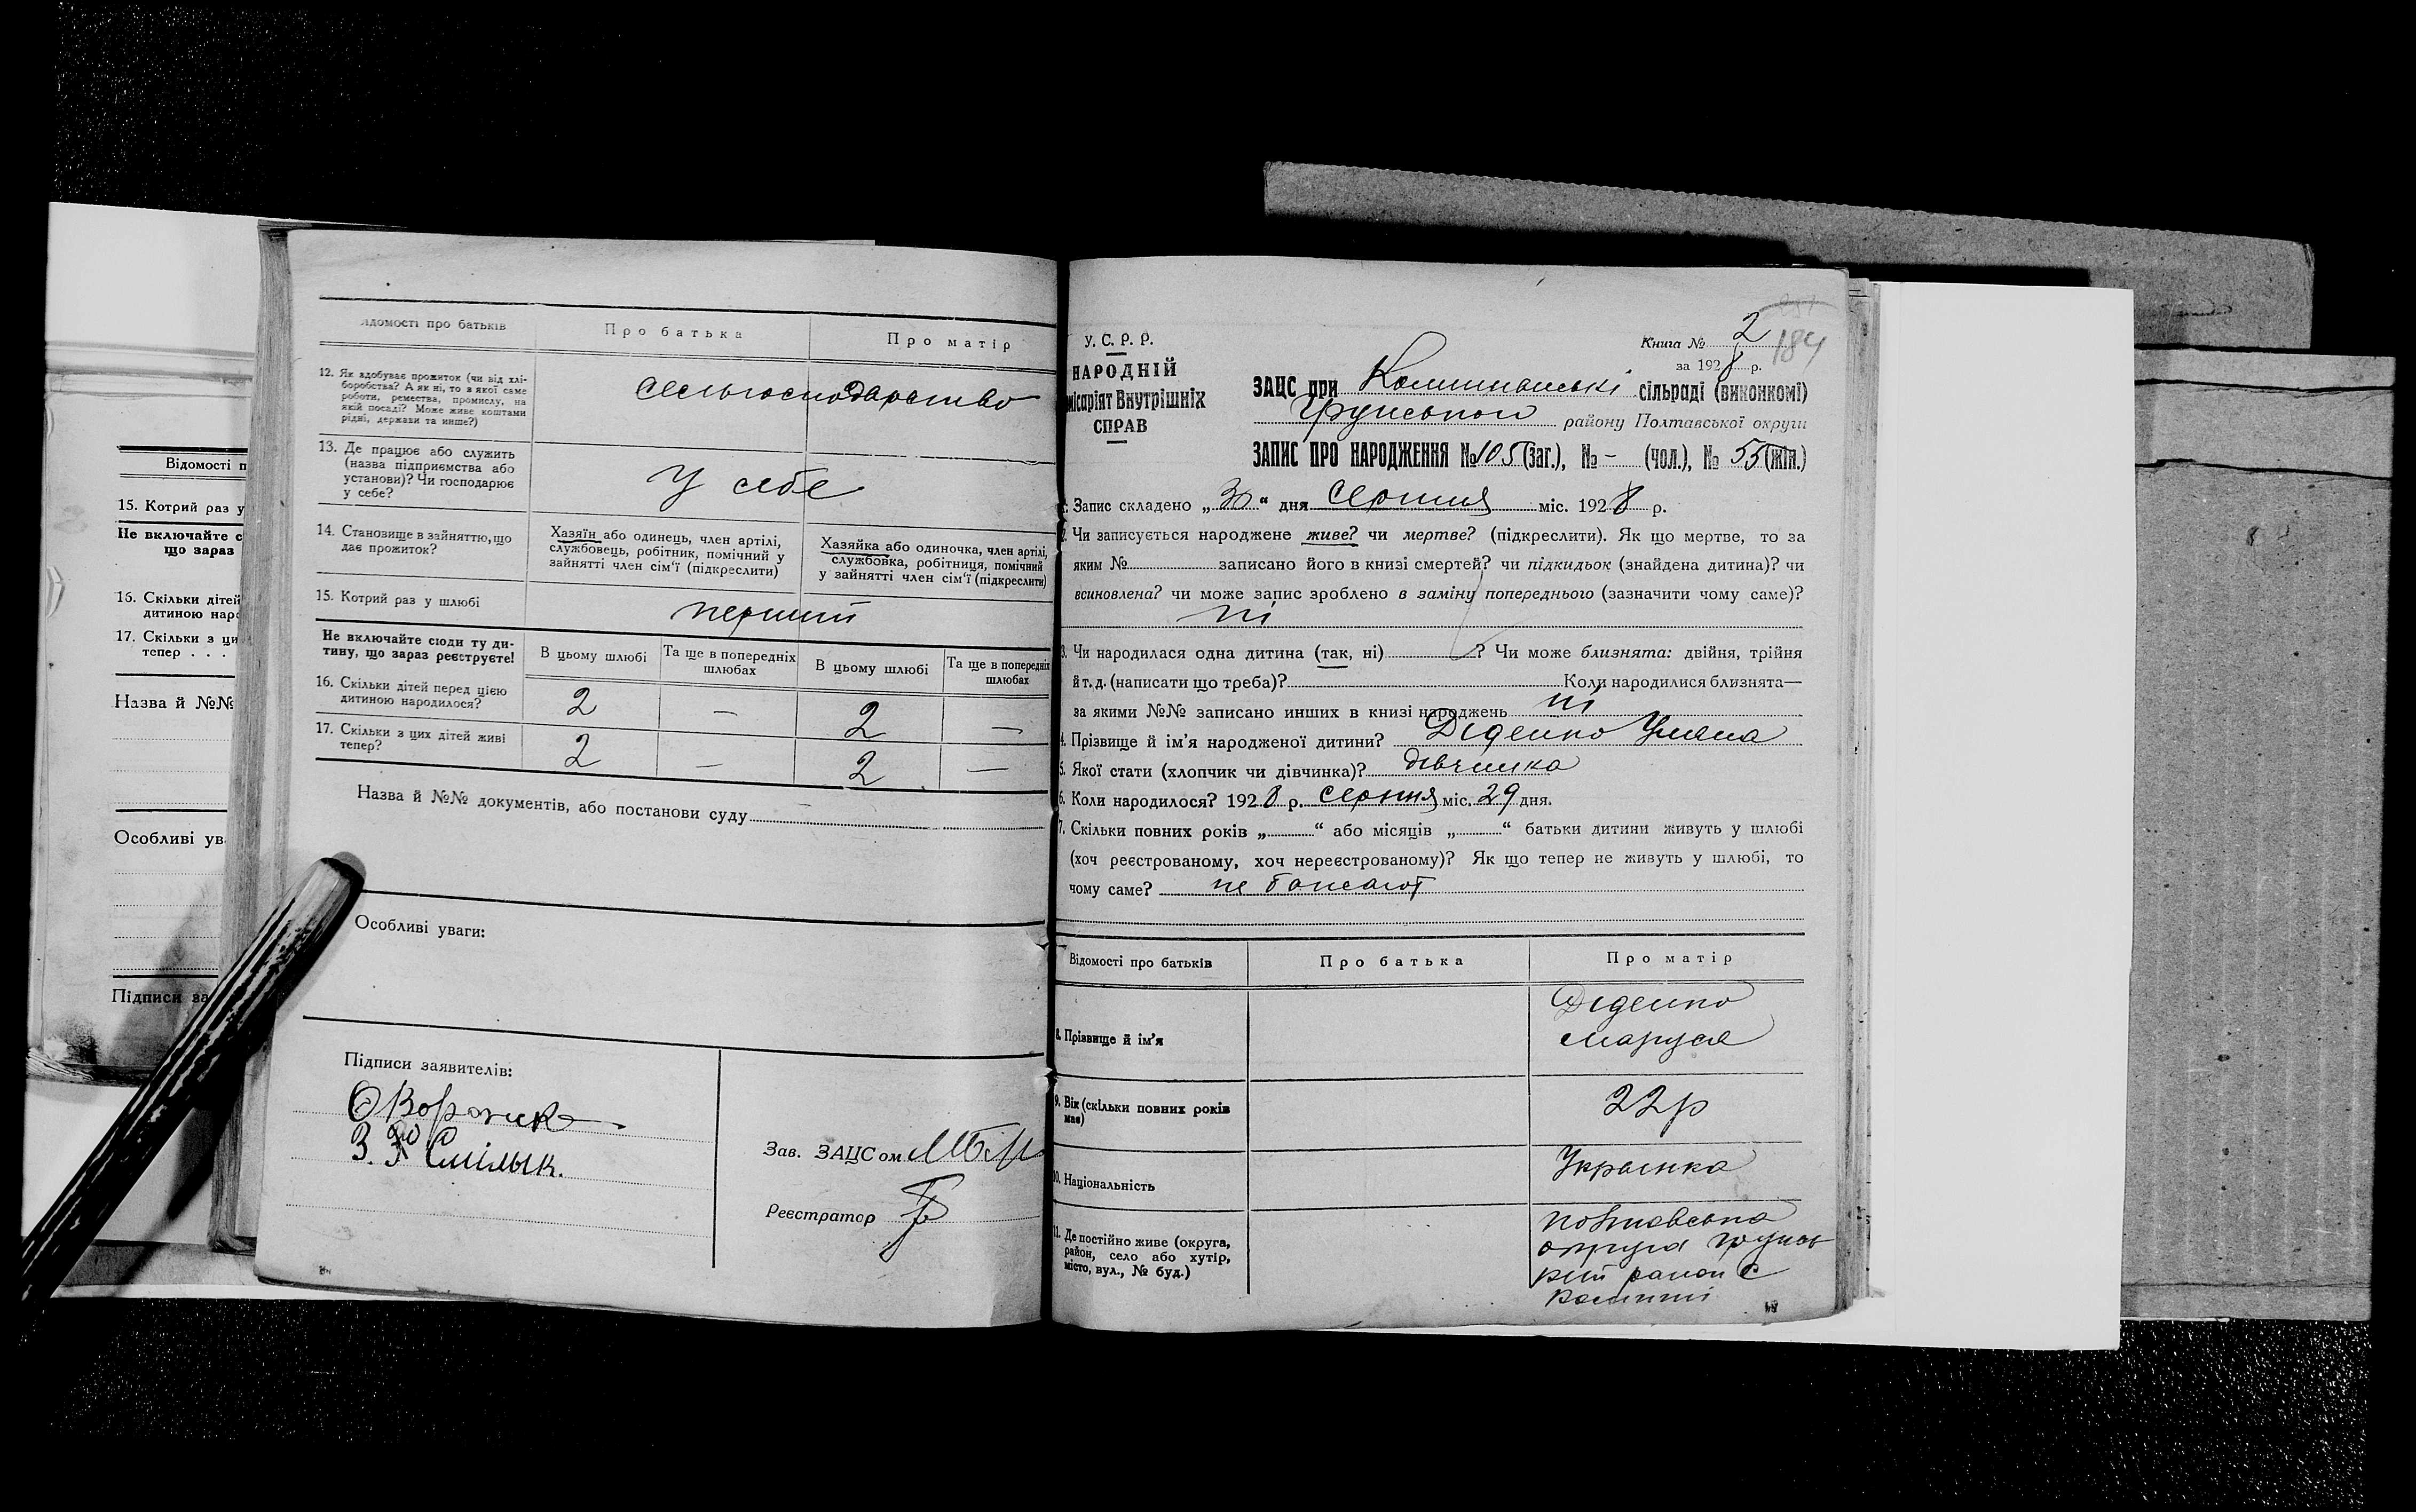 Відомості п
15. Котрий раз у
Не включайте с
що зараз
16. Скільки дітей
дитиною наро
17. Скільки з ци
тепер . . .
Назва й №№
Особливі ув
Підписи за
ідомості про батьків
Про батька
Про матір
12. Як здобуває прожиток (чи від хлі-
боробства? А як ні, то з якої саме
роботи, ремества, промислу, на
якій посаді? Може живе коштами
рідні, держави та инше?)
сельгосподарство
13. Де працює або служить
(назва підприємства або
установи)? Чи господарює
у себе?
У себе
14. Становище в зайняттю, що
дає прожиток?
Хазяїн або одинець, член артілі,
службовець, робітник, помічний у
зайнятті член сім'ї (підкреслити)
Хазяйка або одиночка, член артілі,
службовка, робітниця, помічний
у зайнятті член сім'ї (підкреслити)
15. Котрий раз у шлюбі
перший
Не включайте сюди ту ди-
тину, що зараз реєструєте!
В цьому шлюбі
Та ще в попередніх
шлюбах
В цьому шлюбі
Та ще в попередніх
шлюбах
16. Скільки дітей перед цією
дитиною народилося?
2 — 2 —
17. Скільки з цих дітей живі
тепер?
2 — 2 —
Назва й №№ документів, або постанови суду —
Особливі уваги:
Підписи заявителів:
Зав. ЗАЦСом
Реєстратор
У. С. Р. Р.
НАРОДНІЙ
місаріят Внутрішніх
СПРАВ
Книга № 2
184
за 1928 р.
ЗАЦС при сільраді (виконкомі)
Грунського району Полтавської округи
ЗАПИС ПРО НАРОДЖЕННЯ № 105 (заг.), № - (чол.), № 55 (жін.)
Запис складено „30“ дня серпня міс. 1928 р.
Чи записується народжене живе? чи мертве? (підкреслити). Як що мертве, то за
яким № записано його в книзі смертей? чи підкидьок (знайдена дитина)? чи
всиновлена? чи може запис зроблено в заміну попереднього (зазначити чому саме)?
ні
3. Чи народилася одна дитина (так, ні) ? Чи може близнята: двійня, трійня
й т. д. (написати що треба)? Коли народилися близнята—
за якими №№ записано инших в книзі народжень ні
4. Прізвище й ім'я народженої дитини? Діденко Уляна
5. Якої стати (хлопчик чи дівчинка)? дівчинка
6. Коли народилося? 1928 р. серпня міс. 29 дня.
7. Скільки повних років „ “ або місяців „ “ батьки дитини живуть у шлюбі
(хоч реєстрованому, хоч нереєстрованому)? Як що тепер не живуть у шлюбі, то
чому саме? не бажают
Відомості про батьків
Про батька
Про матір
8. Прізвище й ім'я
Діденко
Маруся
9. Вік (скільки повних років
має)
22 р
10. Національність
Українка
11. Де постійно живе (округа,
район, село або хутір,
місто, вул., № буд.)
Полтавська
округа Грунсь
кий район с